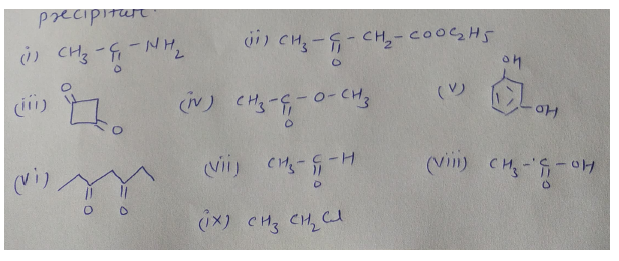 precipitate.
(i) CH3-C-NH2 (ii) CH3-C-CH2-COOC2H5
O O
OH
(iii) O O (iv) CH3-C-O-CH3 (v) OH
O
(vi) O O (vii) CH3-C-H (viii) CH3-C-OH
O O
(ix) CH3 CH2 Cl